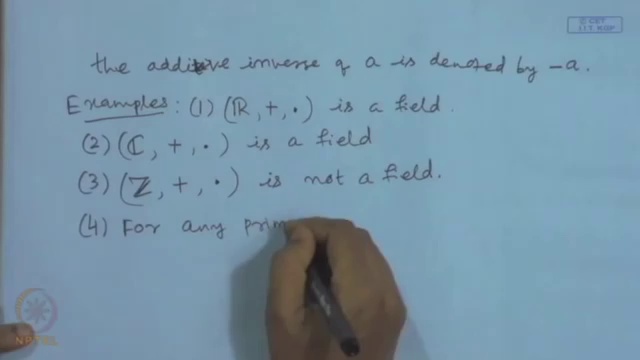 © CET
I.I.T. KGP
the additive inverse of a is denoted by -a.
Examples: (1) (ℝ, +, ·) is a field.
(2) (ℂ, +, ·) is a field
(3) (ℤ, +, ·) is not a field.
(4) For any prim
NPTEL